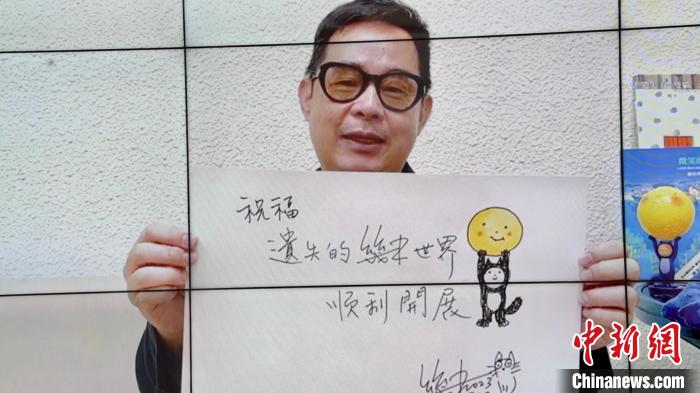 祝福
遺失的幾米世界
順利開展
幾米 2023
微笑
中新網
Chinanews.com